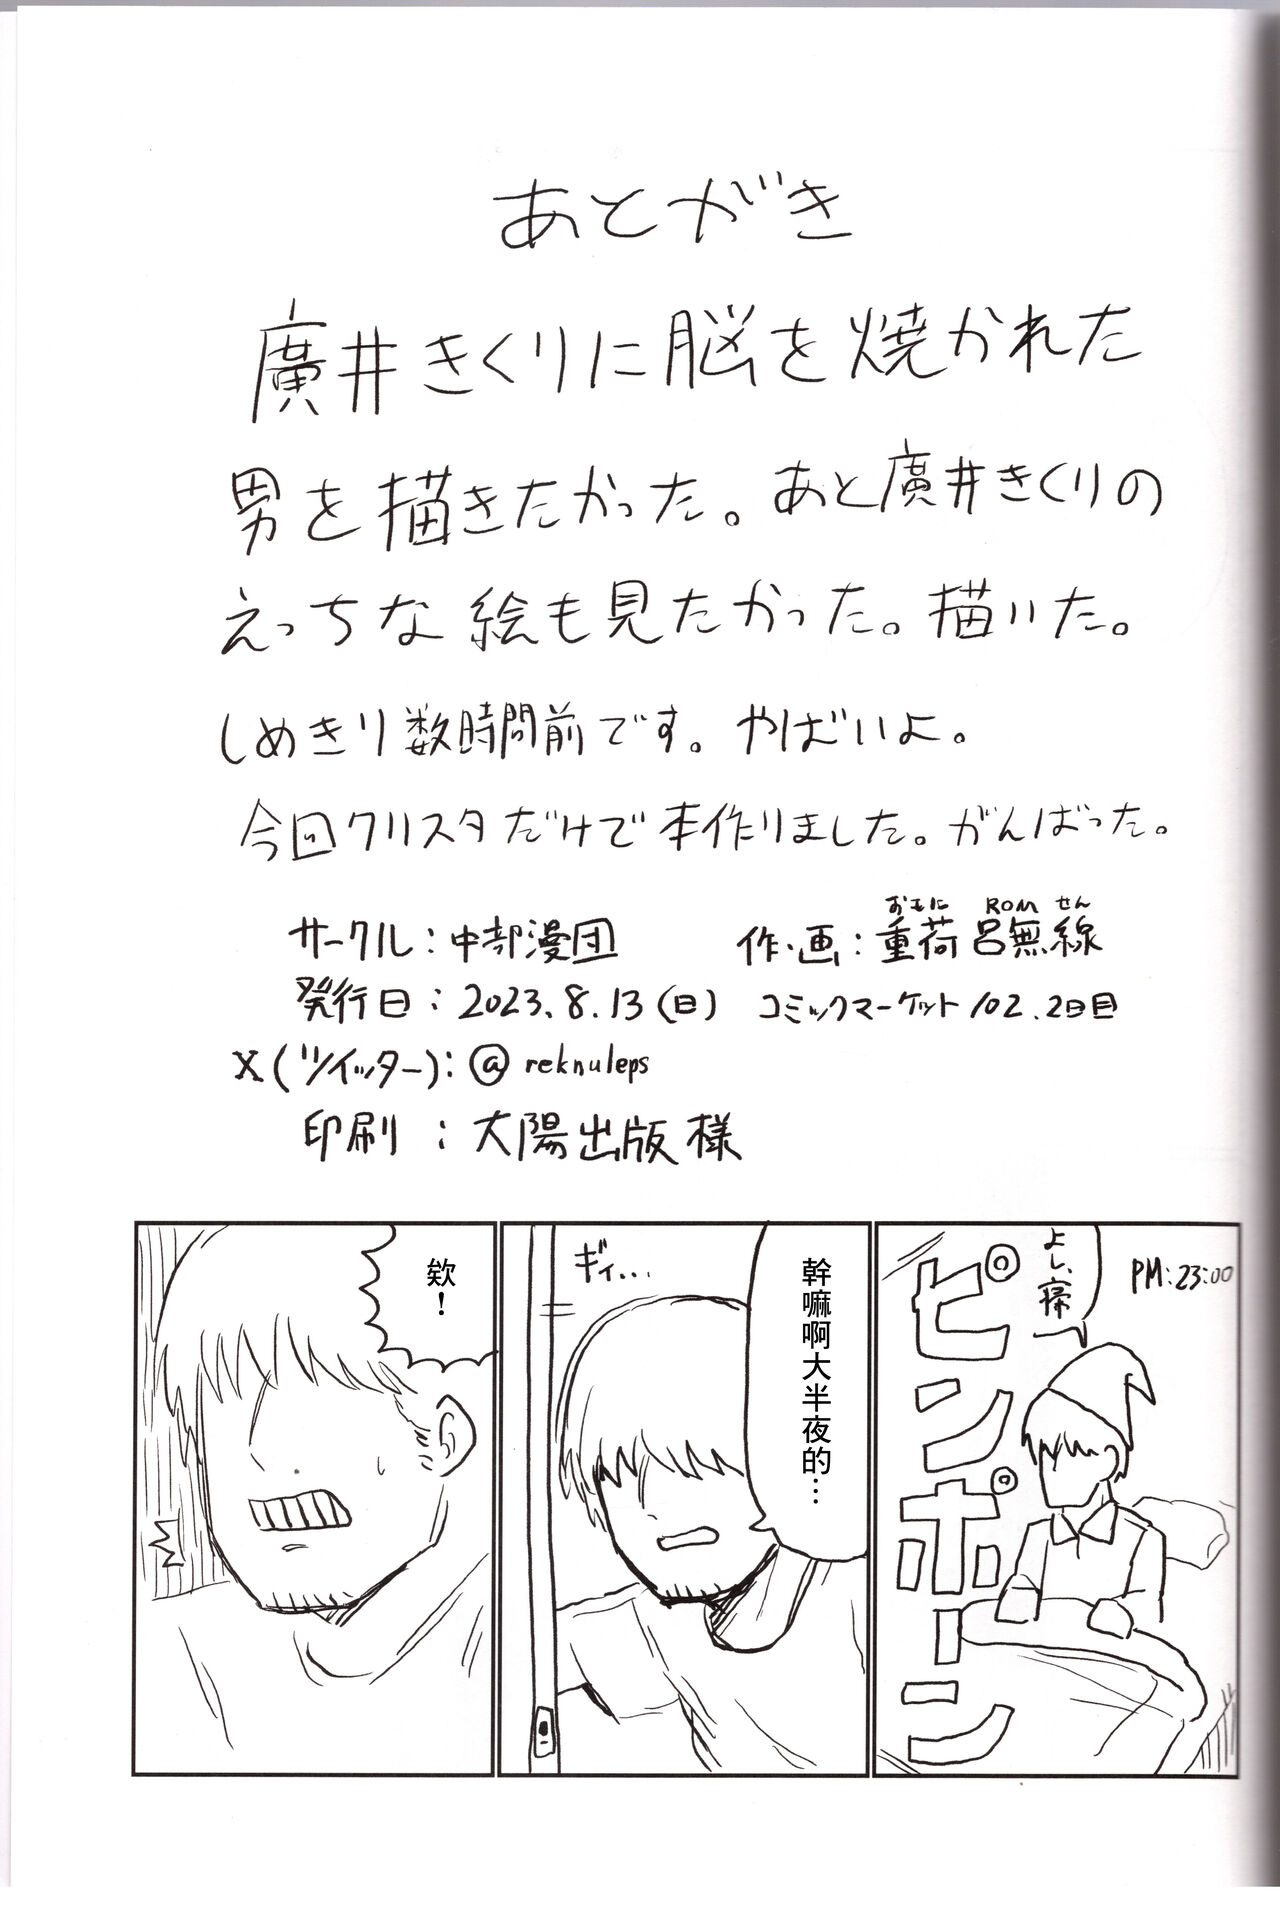 あとがき
廣井きくりに脳を焼かれた
男を描きたかった。あと廣井きくりの
えっちな絵も見たかった。描いた。
しめきり数時間前です。やばいよ。
今回クリスタだけで本作りました。がんばった。
サークル:中部漫団
作・画:重荷呂無線
おもに ROM せん
発行日:2023.8.13(日) コミックマーケット102.2日目
X(ツイッター):@reknuleps
印刷:大陽出版様
PM:23:00
よし、寝
ピンポーン
幹嘛啊大半夜的…
ギィ...
欸!